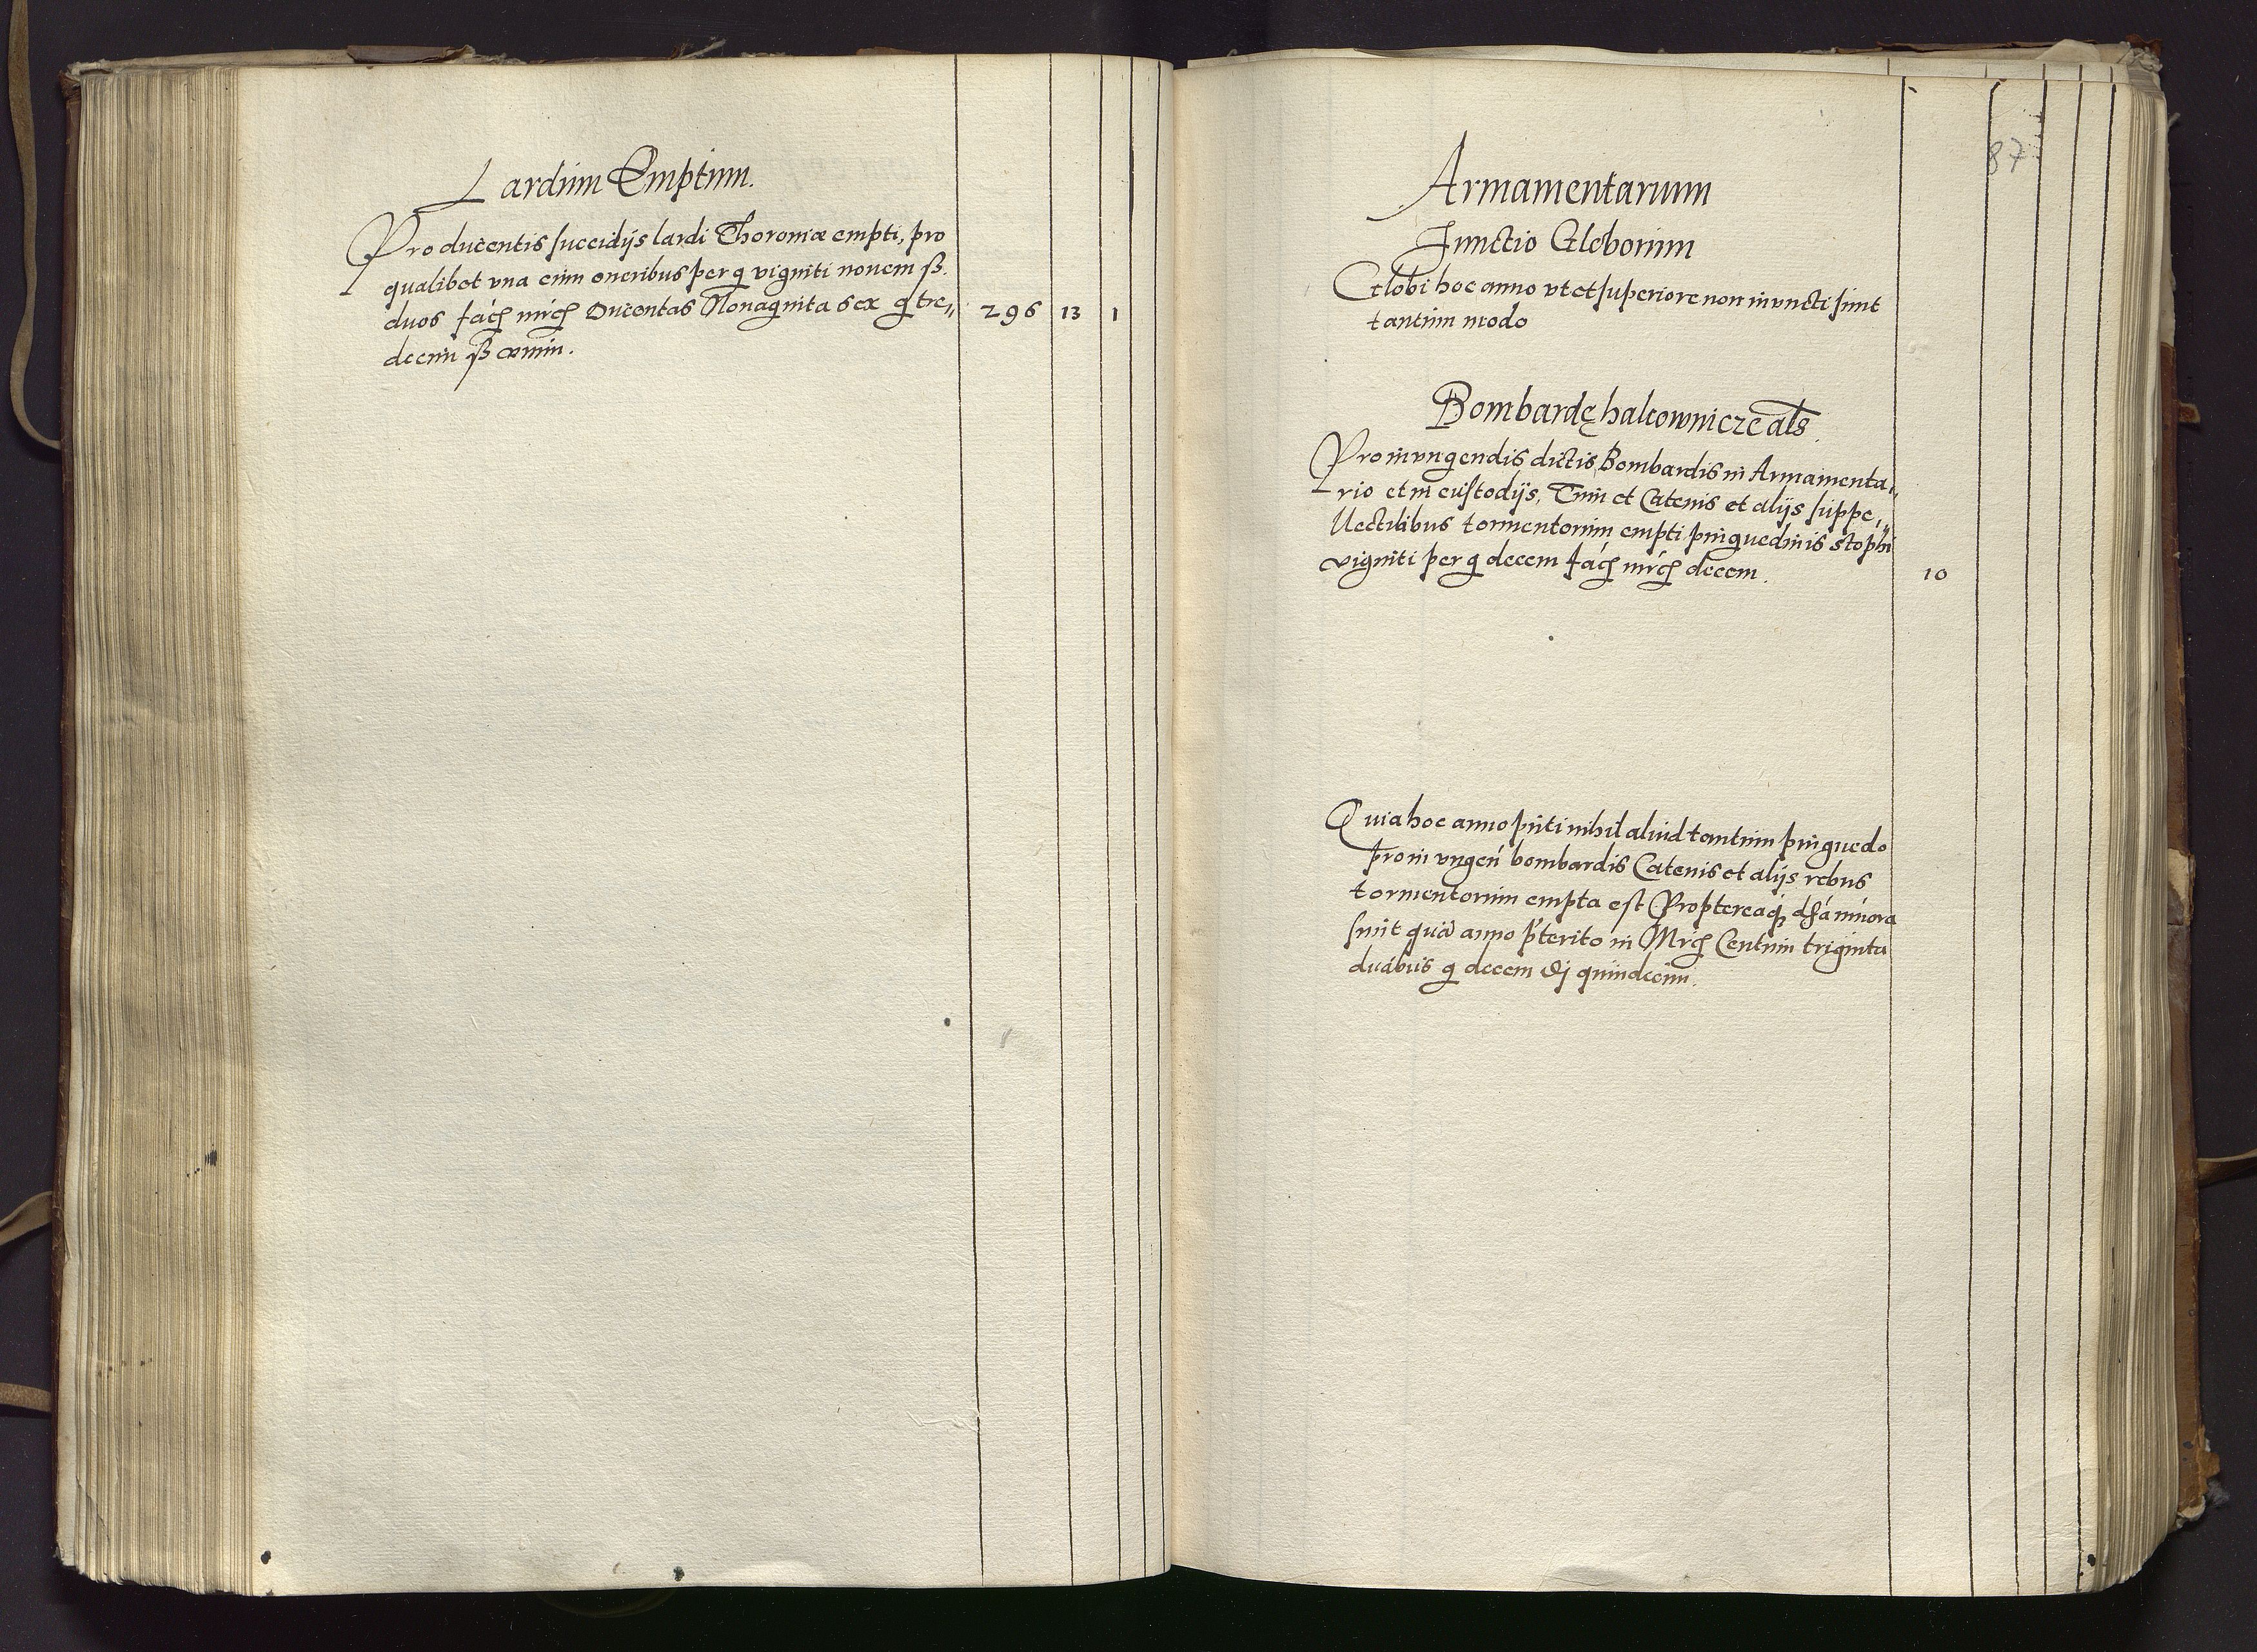 Lardum Emptum.
Pro ducentis succidijs lardi Thoroniæ empti, pro
qualibet vna cum oneribus per g viginti nouem ß.
duos fác mrc Ducentas Nonaginta sex g tre„ 296 13 1
decim ß vnum.
87
Armamentarium
Junctio Globorum
Globi hoc anno vt et superiore non invncti sunt
tantum modo
Bombardę hakownicze als
Pro invngendis dictis Bombardis in Armamenta„
rio et in custodijs, Tum et Catenis et alijs suppe„
llectilibus tormentorum empti pinguedinis stophi
viginti per g decem fác mrc decem. 10
Quia hoc anno pnti nihil aliud tantum pinguedo
pro in vngen bombardis Catenis et alijs rebus
tormentorum empta est Propterea minora
sunt qua anno pterito in Mrc Centum triginta
duabus g decem quindecim.